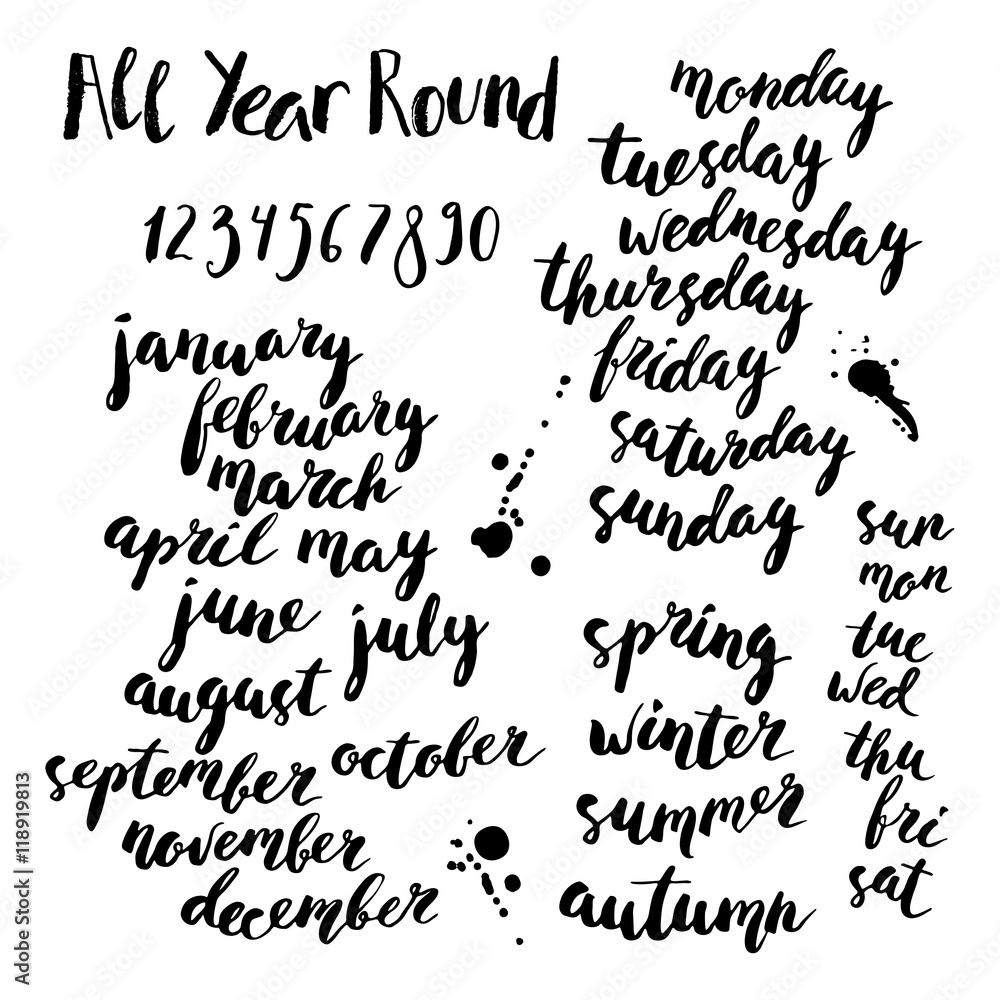 All Year Round
1234567890
january
february
march
april may
june july
august
september october
november
december
monday
tuesday
wednesday
thursday
friday
saturday
sunday
spring
winter
summer
autumn
sun
mon
tue
wed
thu
fri
sat
Adobe Stock | #118919813